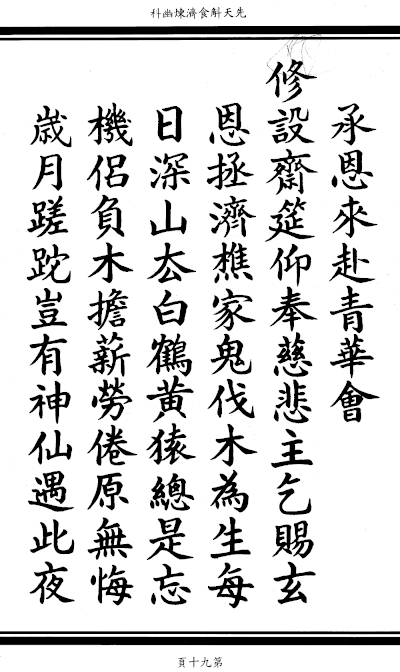 先天斛食濟煉幽科
承恩來赴青華會
修設齋筵仰奉慈悲主乞賜玄
恩拯濟樵家鬼伐木為生每
日深山厺白鶴黃猿總是忘
機侶負木擔薪勞倦原無悔
歲月蹉跎豈有神仙遇此夜
第九十頁